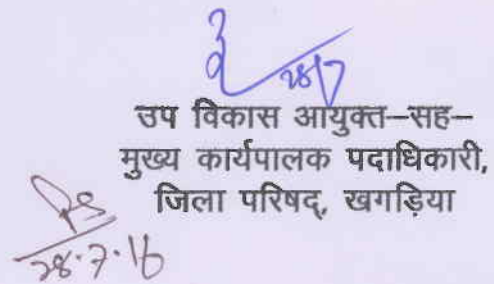 28/7
उप विकास आयुक्त–सह–
मुख्य कार्यपालक पदाधिकारी,
जिला परिषद्, खगड़िया
28.7.16